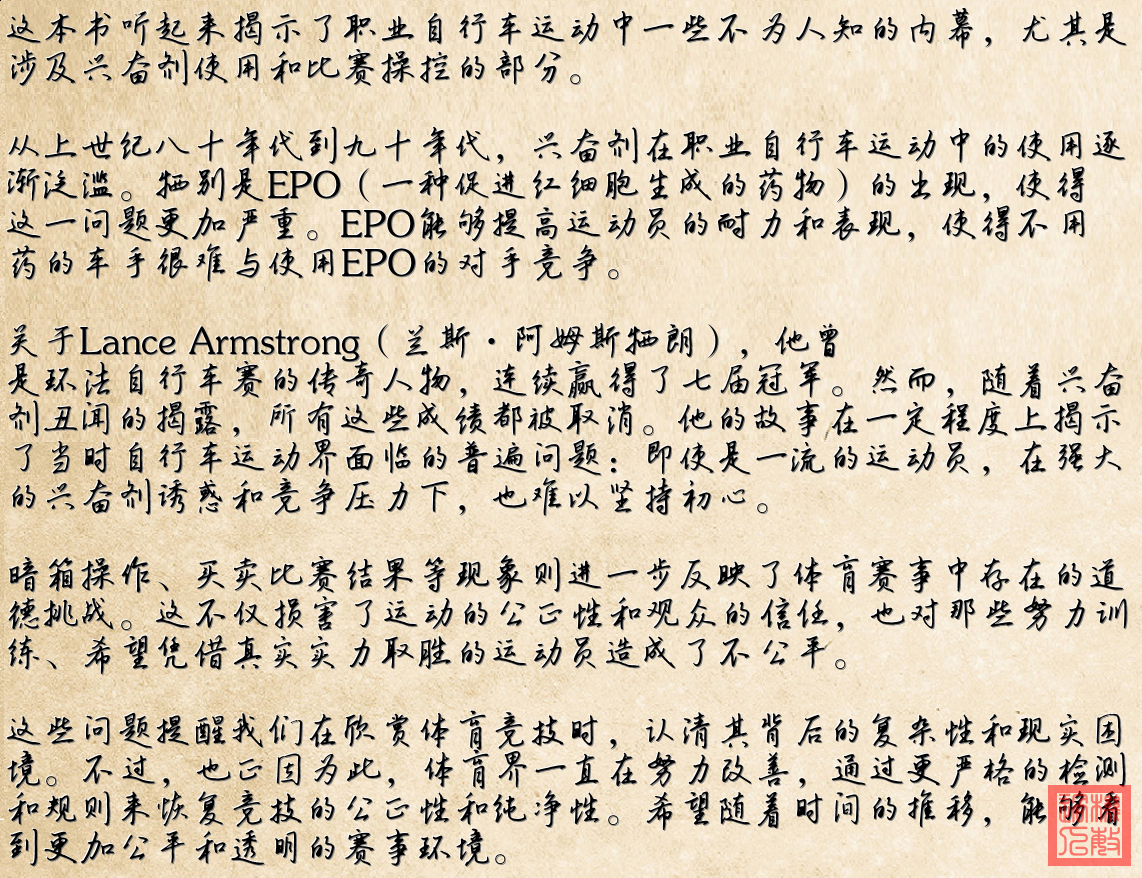 这本书听起来揭示了职业自行车运动中一些不为人知的内幕，尤其是
涉及兴奋剂使用和比赛操控的部分。
从上世纪八十年代到九十年代，兴奋剂在职业自行车运动中的使用逐
渐泛滥。牺别是EPO（一种促进红细胞生成的药物）的出现，使得
这一问题更加严重。EPO能够提高运动员的耐力和表现，使得不用
药的车手很难与使用EPO的对手竞争。
关于Lance Armstrong（兰斯·阿姆斯牺朗），他曾
是环法自行车赛的传奇人物，连续赢得了七届冠军。然而，随着兴奋
剂丑闻的揭露，所有这些成绩都被取消。他的故事在一定程度上揭示
了当时自行车运动界面临的普遍问题：即使是一流的运动员，在强大
的兴奋剂诱惑和竞争压力下，也难以坚持初心。
暗箱操作、买卖比赛结果等现象则进一步反映了体育赛事中存在的道
德挑战。这不仅损害了运动的公正性和观众的信任，也对那些努力训
练、希望凭借真实实力取胜的运动员造成了不公平。
这些问题提醒我们在欣赏体育竞技时，认清其背后的复杂性和现实困
境。不过，也正因为此，体育界一直在努力改善，通过更严格的检测
和规则来恢复竞技的公正性和纯净性。希望随着时间的推移，能够看
到更加公平和透明的赛事环境。